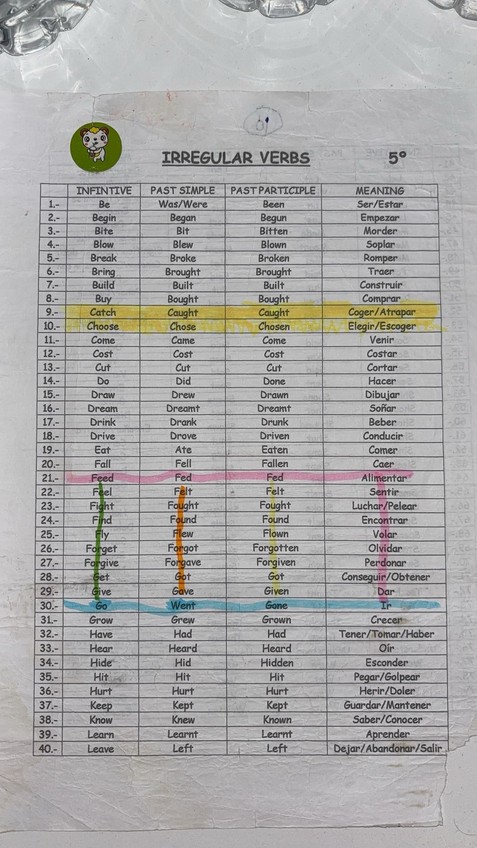 IRREGULAR VERBS 5º
INFINTIVE PAST SIMPLE PAST PARTICIPLE MEANING
1.- Be Was/Were Been Ser/Estar
2.- Begin Began Begun Empezar
3.- Bite Bit Bitten Morder
4.- Blow Blew Blown Soplar
5.- Break Broke Broken Romper
6.- Bring Brought Brought Traer
7.- Build Built Built Construir
8.- Buy Bought Bought Comprar
9.- Catch Caught Caught Coger/Atrapar
10.- Choose Chose Chosen Elegir/Escoger
11.- Come Came Come Venir
12.- Cost Cost Cost Costar
13.- Cut Cut Cut Cortar
14.- Do Did Done Hacer
15.- Draw Drew Drawn Dibujar
16.- Dream Dreamt Dreamt Soñar
17.- Drink Drank Drunk Beber
18.- Drive Drove Driven Conducir
19.- Eat Ate Eaten Comer
20.- Fall Fell Fallen Caer
21.- Feed Fed Fed Alimentar
22.- Feel Felt Felt Sentir
23.- Fight Fought Fought Luchar/Pelear
24.- Find Found Found Encontrar
25.- Fly Flew Flown Volar
26.- Forget Forgot Forgotten Olvidar
27.- Forgive Forgave Forgiven Perdonar
28.- Get Got Got Conseguir/Obtener
29.- Give Gave Given Dar
30.- Go Went Gone Ir
31.- Grow Grew Grown Crecer
32.- Have Had Had Tener/Tomar/Haber
33.- Hear Heard Heard Oír
34.- Hide Hid Hidden Esconder
35.- Hit Hit Hit Pegar/Golpear
36.- Hurt Hurt Hurt Herir/Doler
37.- Keep Kept Kept Guardar/Mantener
38.- Know Knew Known Saber/Conocer
39.- Learn Learnt Learnt Aprender
40.- Leave Left Left Dejar/Abandonar/Salir